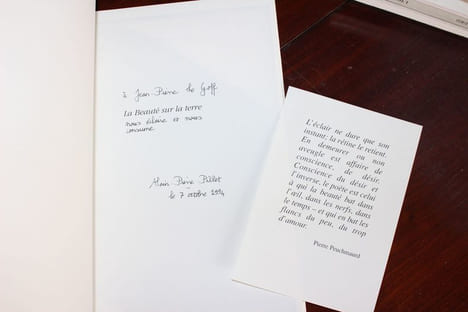 à Jean-Pierre Le Goff
La Beauté sur la terre
nous éclaire et nous
consume
Alain-Pierre Pillet
le 7 octobre
L'éclair ne dure que son
instant, la rétine le retient.
En demeurer ou non
aveugle est affaire de
conscience, de désir.
Conscience du désir et
l'inverse, le poète est celui
à qui la beauté bat dans
l'œil, dans les nerfs, dans
le temps – et qui en bat les
flancs du peu, du trop
d'amour.
Pierre Peuchmaurd